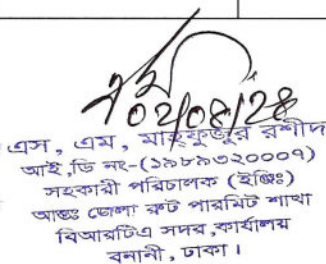 ০২/০৪/২৪
এস, এম, মাহফুজুর রশীদ
আই,ডি নং-(১৯৮৯৩২০০০৭)
সহকারী পরিচালক (ইঞ্জিঃ)
আন্তঃ জেলা রুট পারমিট শাখা
বিআরটিএ সদর ,কার্যালয়
বনানী , ঢাকা।